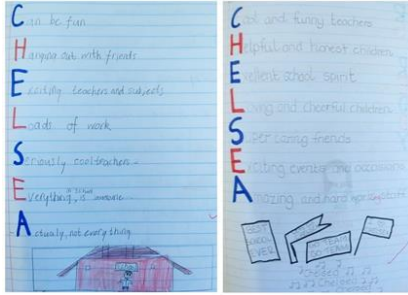 Can be fun
Hanging out with friends
Exciting teachers and subjects
Loads of work
Seriously cool teachers
Everything in school is
Actually, not everything
Cool and funny teachers
Helpful and honest children
Excellent school spirit
Loving and cheerful children
Super caring friends
Exciting events and occasions
Amazing and hard staff
BEST SCHOOL EVER
GO TEAM
GO TEAM
Chelsea
Chelsea